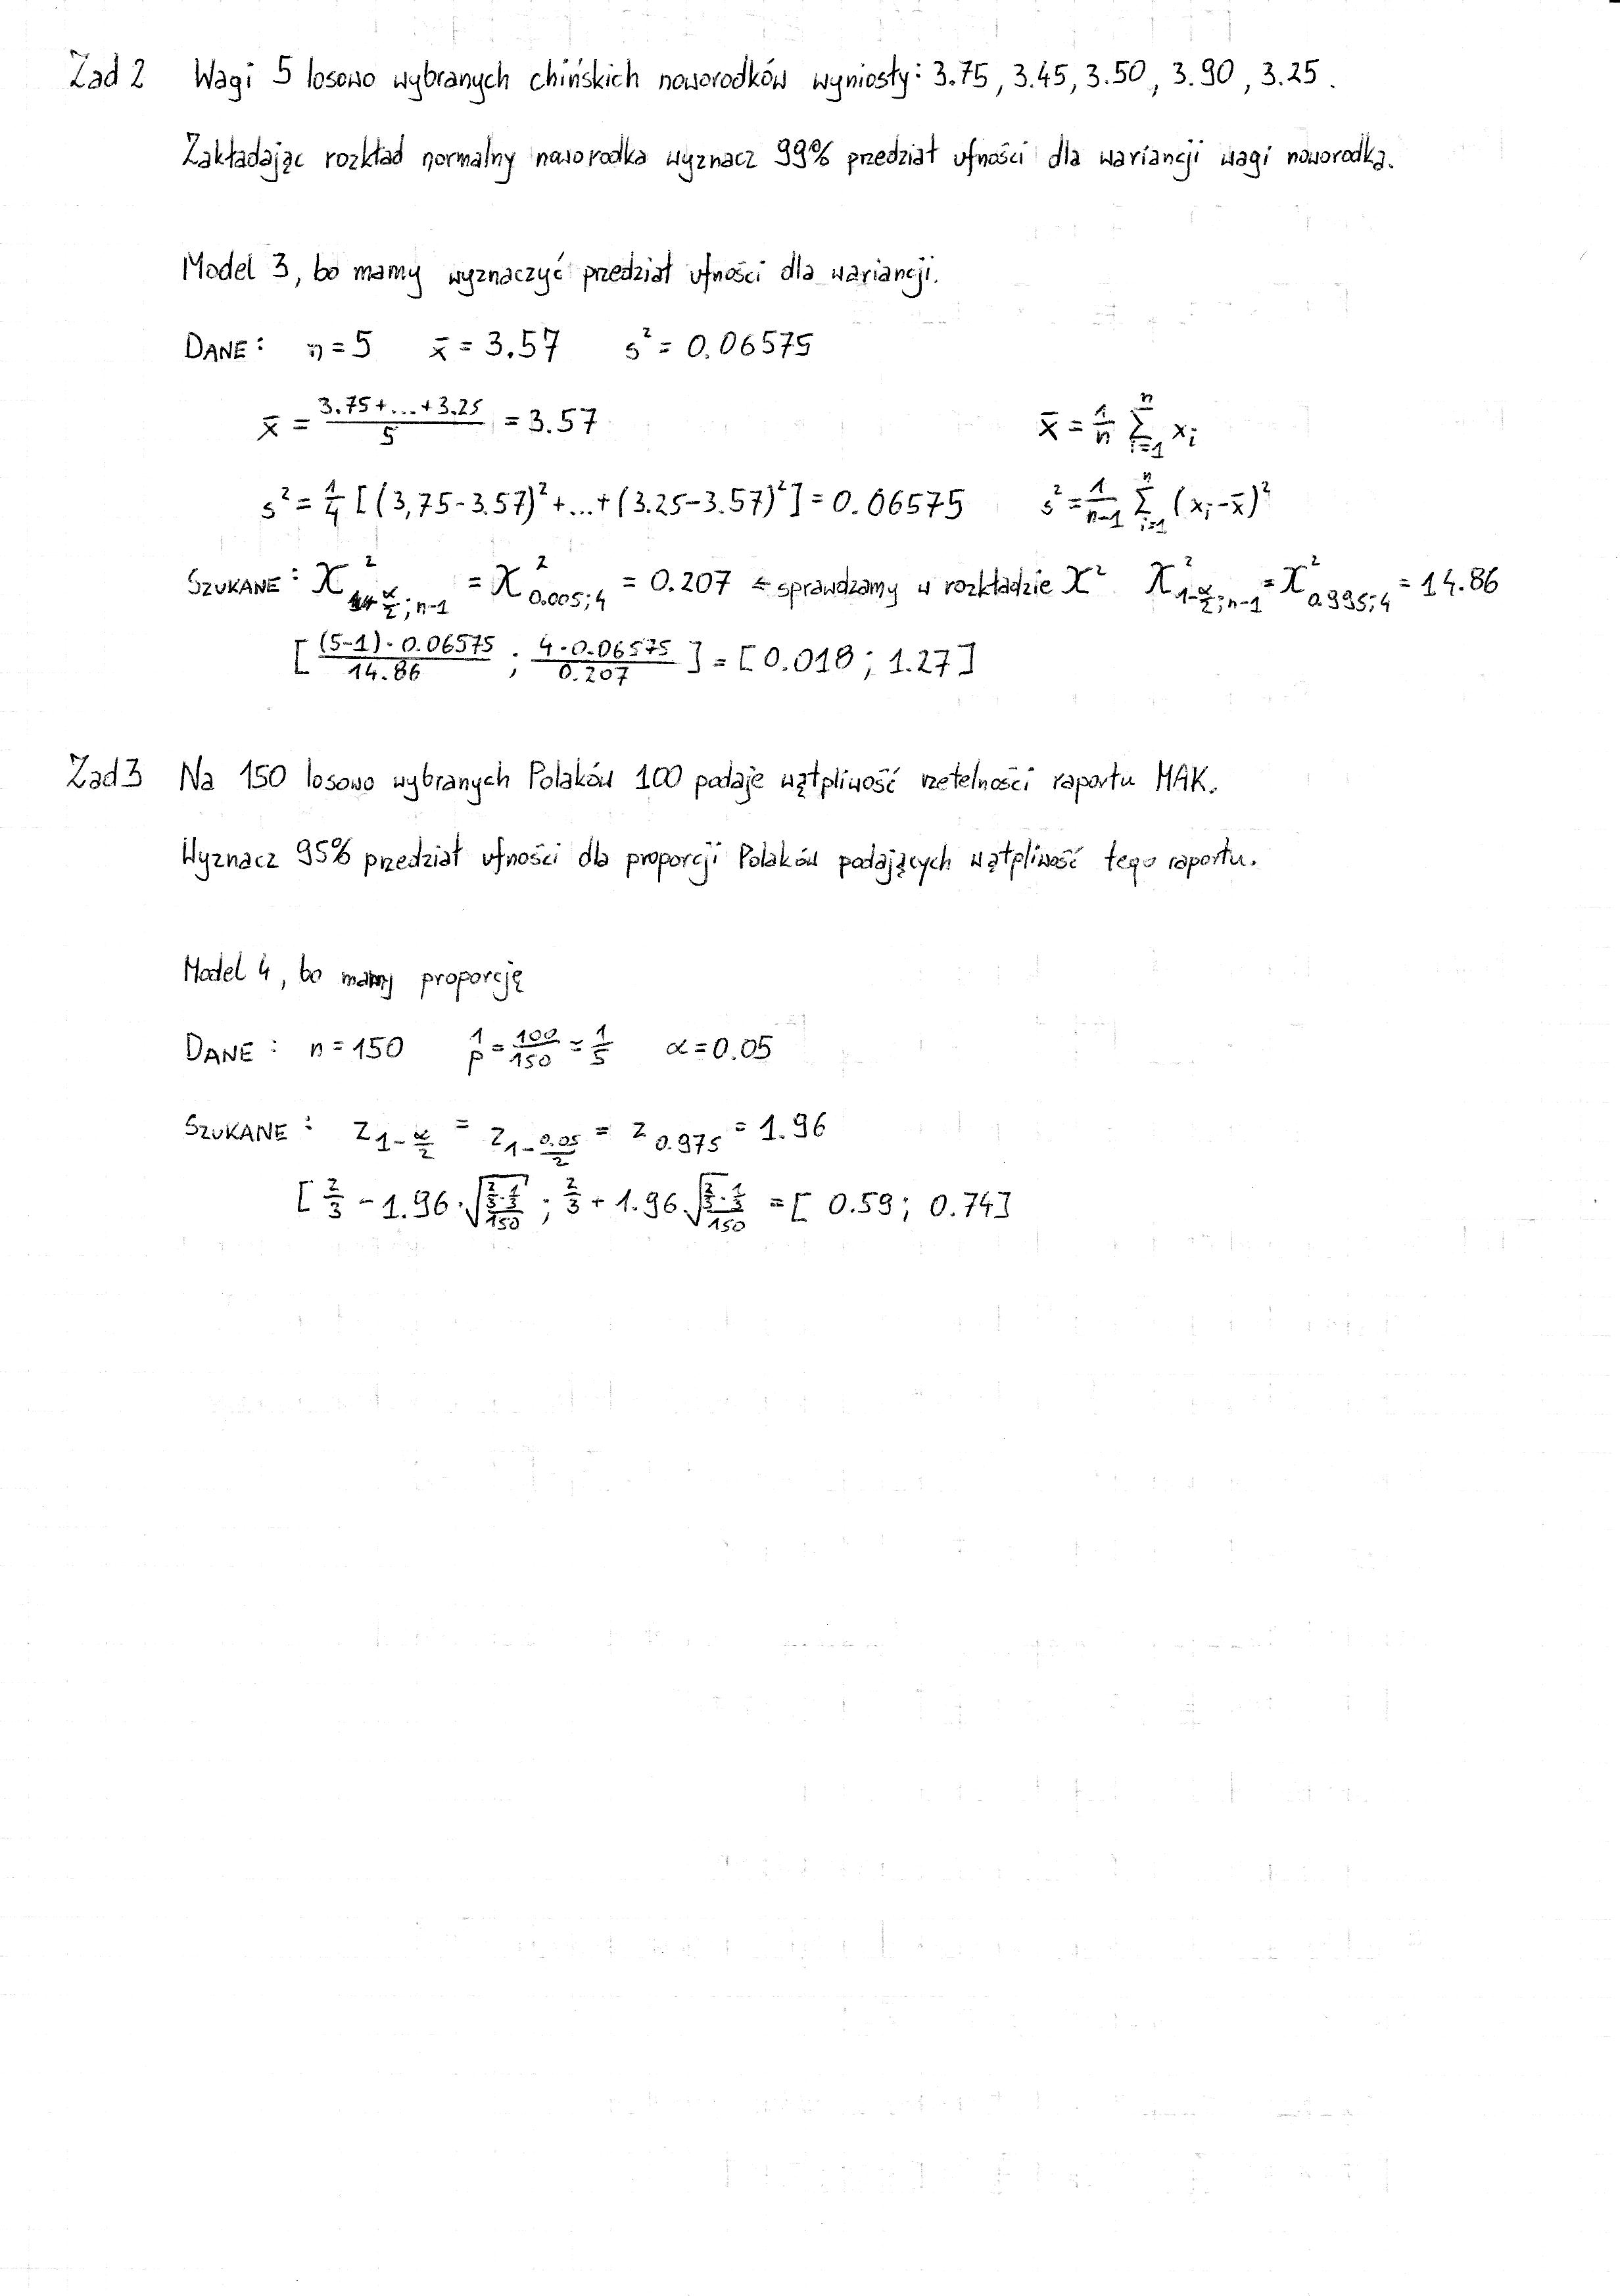 Zad 2 Wagi 5 losowo wybranych chińskich noworodków wyniosły: 3.75, 3.45, 3.50, 3.90, 3.25.
Zakładając rozkład normalny noworodka wyznacz 99% przedział ufności dla wariancji wagi noworodka.
Model 3, bo mamy wyznaczyć przedział ufności dla wariancji.
DANE: n = 5 x̄ = 3.57 s² = 0.06575
x̄ = (3.75+...+3.25)/5 = 3.57 x̄ = 1/n ∑_{i=1}^{n} x_i
s² = 1/4 [(3,75-3.57)²+...+(3.25-3.57)²] = 0.06575 s² = 1/(n-1) ∑_{i=1}^{n} (x_i-x̄)²
SZUKANE: χ²_{α/2; n-1} = χ²_{0.005; 4} = 0.207 ← sprawdzamy w rozkładzie χ² χ²_{1-α/2; n-1} = χ²_{0.995; 4} = 14.86
[ (5-1)·0.06575/14.86 ; 4·0.06575/0.207 ] = [0.018 ; 1.27]
Zad 3 Na 150 losowo wybranych Polaków 100 podaje wątpliwość rzetelności raportu MAK.
Wyznacz 95% przedział ufności dla proporcji Polaków podających wątpliwość tego raportu.
Model 4, bo mamy proporcję
DANE: n = 150 1/p = 100/150 = 1/5 α = 0.05
SZUKANE: z_{1-α/2} = z_{1-0.05/2} = z_{0.975} = 1.96
[ 2/3 - 1.96·√((2/3·1/3)/150) ; 2/3 + 1.96 √((2/3·1/3)/150) = [ 0.59; 0.74]